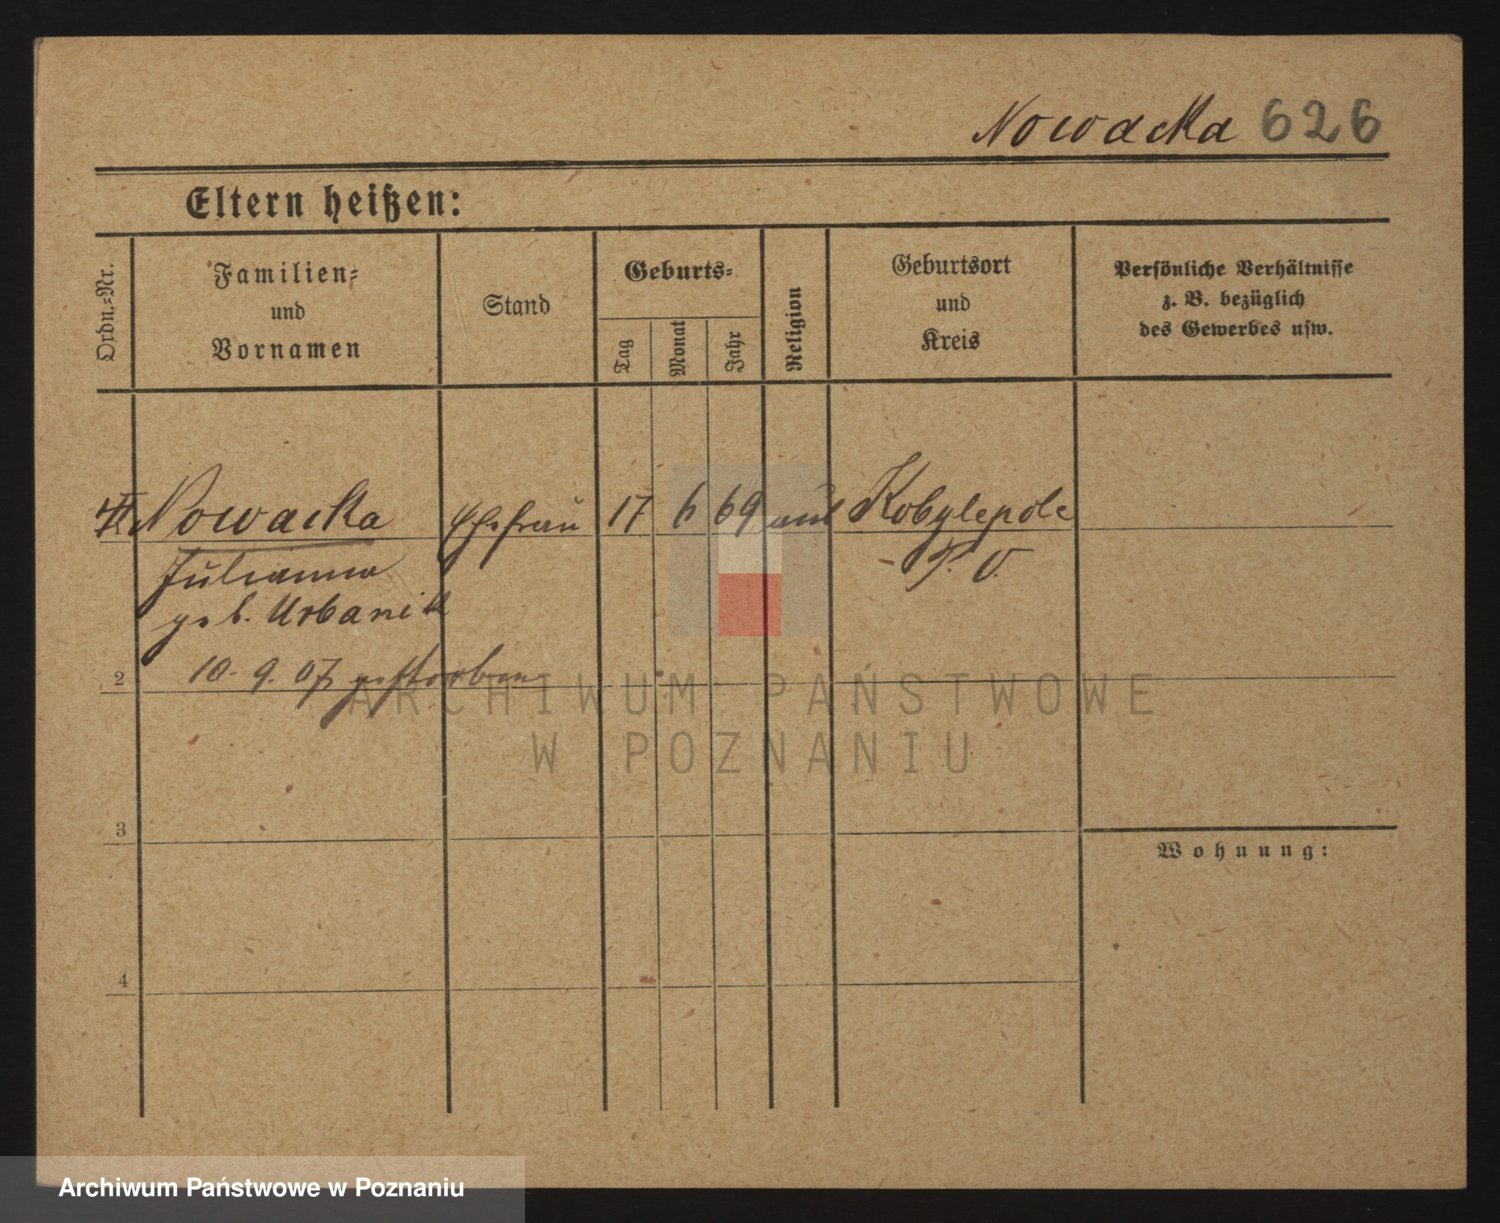 Nowacka 626
Eltern heißen:
Ordn.-Nr.
Familien-
und
Vornamen
Stand
Geburts-
Tag
Monat
Jahr
Religion
Geburtsort
und
Kreis
Persönliche Verhältnisse
z. B. bezüglich
des Gewerbes usw.
Nowacka Ehefrau 17 6 69 Kobylepole
Julianna P. O.
geb. Urbanik
10. 9. 07 gestorben
2
3
4
Wohnung:
ARCHIWUM PAŃSTWOWE
W POZNANIU
Archiwum Państwowe w Poznaniu